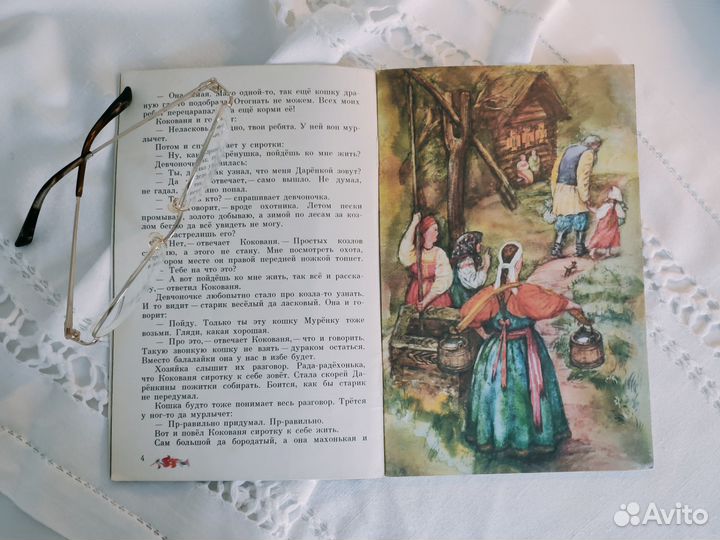 — Она злая. Мало одной-то, так ещё кошку дра-
ную подобрала. Отогнать не можем. Всех моих
ребят перецарапала, а ещё корми её!
Кокованя и
— Неласковы твои ребята. У ней вон мур-
лычет.
Потом и у сиротки:
— Ну, пойдёшь ко мне жить?
Девчоночка
— Ты, узнал, что меня Дарёнкой зовут?
— Да — отвечает, — само вышло. Не думал,
не гадал, попал.
кто? — спрашивает девчоночка.
говорит, — вроде охотника. Летом пески
промываю, золото добываю, а зимой по лесам за коз-
лом бегаю да всё увидеть не могу.
— Застрелишь его?
— Нет, — отвечает Кокованя. — Простых козлов
стреляю, а этого не стану. Мне посмотреть охота,
в котором месте он правой передней ножкой топнет.
— Тебе на что это?
— А вот пойдёшь ко мне жить, так всё и расска-
жу, — ответил Кокованя.
Девчоночке любопытно стало про козла-то узнать.
И то видит — старик весёлый да ласковый. Она и го-
ворит:
— Пойду. Только ты эту кошку Мурёнку тоже
возьми. Гляди, какая хорошая.
— Про это, — отвечает Кокованя, — что и говорить.
Такую звонкую кошку не взять — дураком остаться.
Вместо балалайки она у нас в избе будет.
Хозяйка слышит их разговор. Рада-радёхонька,
что Кокованя сиротку к себе зовёт. Стала скорей Да-
рёнкины пожитки собирать. Боится, как бы старик
не передумал.
Кошка будто тоже понимает весь разговор. Трётся
у ног-то да мурлычет:
— Пр-равильно придумал. Пр-равильно.
Вот и повёл Кокованя сиротку к себе жить.
Сам большой да бородатый, а она махонькая и
4
Avito